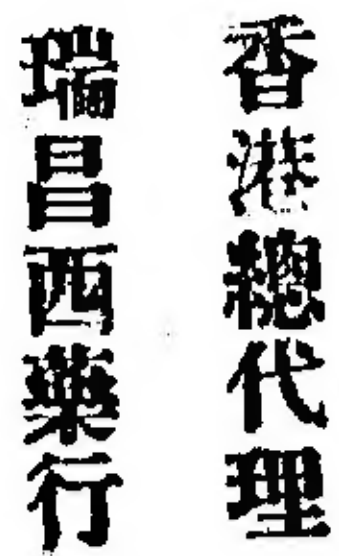 香港總代理
瑞昌西藥行